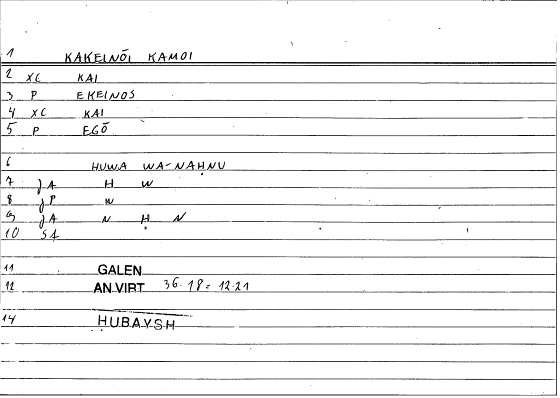 1 KAKEINŌI KAMOI
2 XC KAI
3 P EKEINOS
4 XC KAI
5 P EGŌ
6 HUWA WA-NAḤNU
7 JA H W
8 JP W
9 JA N Ḥ N
10 SA
11 GALEN
12 AN VIRT 36.18 = 12.21
14 ḤUBAYSH